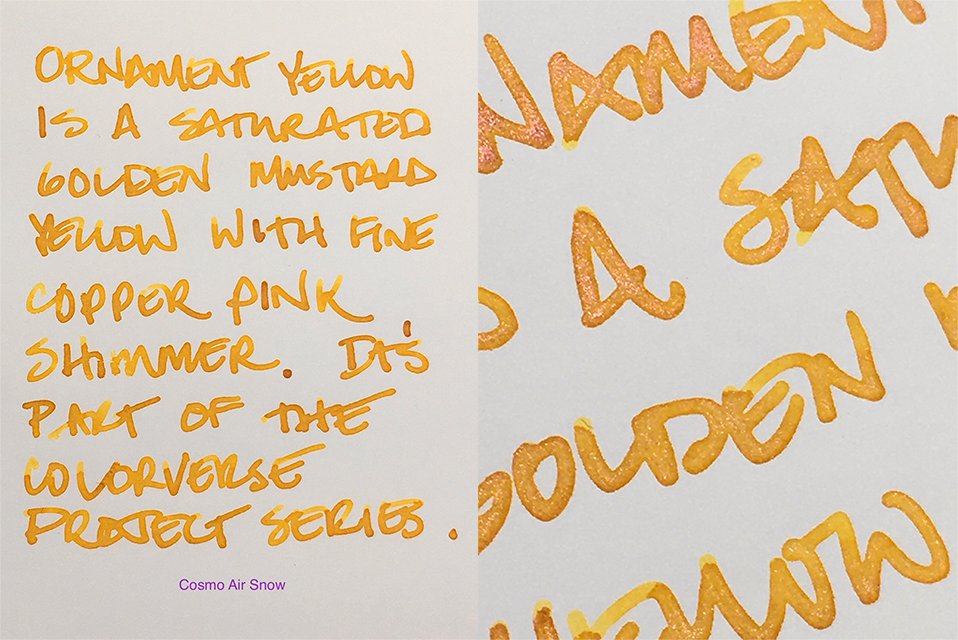 ORNAMENT YELLOW
IS A SATURATED
GOLDEN MUSTARD
YELLOW WITH FINE
COPPER PINK
SHIMMER. IT'S
PART OF THE
COLORVERSE
PROJECT SERIES.
Cosmo Air Snow
NAMENT
A SATU
GOLDEN
YELLOW